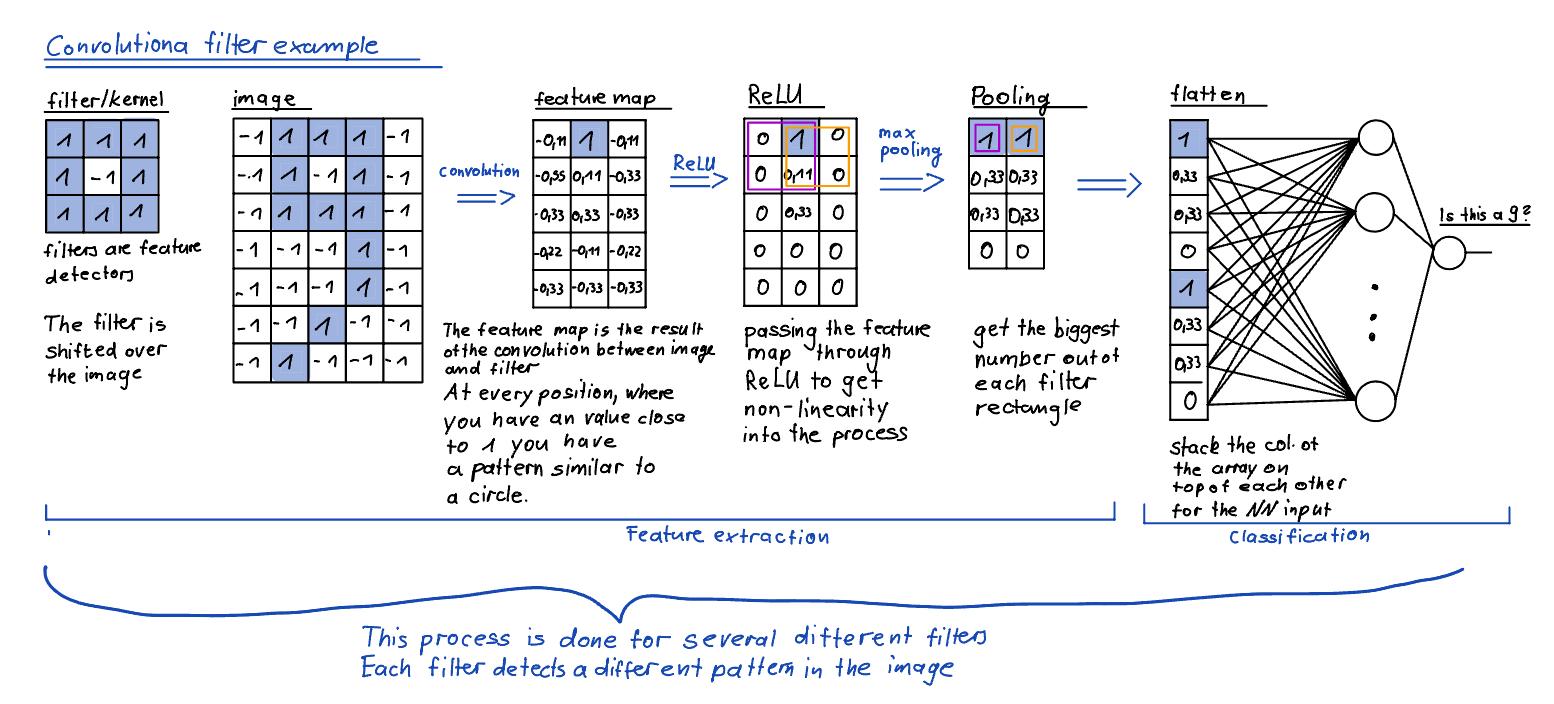 Convolutiona filter example
filter/kernel
1 1 1
1 -1 1
1 1 1
filters are feature
detectors
The filter is
shifted over
the image
image
-1 1 1 1 -1
-1 1 -1 1 -1
-1 1 1 1 -1
-1 -1 -1 1 -1
-1 -1 -1 1 -1
-1 -1 1 -1 -1
-1 1 -1 -1 -1
convolution
feature map
-0,11 1 -0,11
-0,55 0,11 -0,33
-0,33 0,33 -0,33
-0,22 -0,11 -0,22
-0,33 -0,33 -0,33
The feature map is the result
of the convolution between image
and filter
At every position, where
you have an value close
to 1 you have
a pattern similar to
a circle.
ReLU
ReLU
0 1 0
0 0,11 0
0 0,33 0
0 0 0
0 0 0
passing the feature
map through
ReLU to get
non-linearity
into the process
max
pooling
Pooling
1 1
0,33 0,33
0,33 0,33
0 0
get the biggest
number out of
each filter
rectangle
flatten
1
0,33
0,33
0
1
0,33
0,33
0
Is this a 9?
stack the col. of
the array on
top of each other
for the NN input
Feature extraction
Classification
This process is done for several different filters
Each filter detects a different pattern in the image